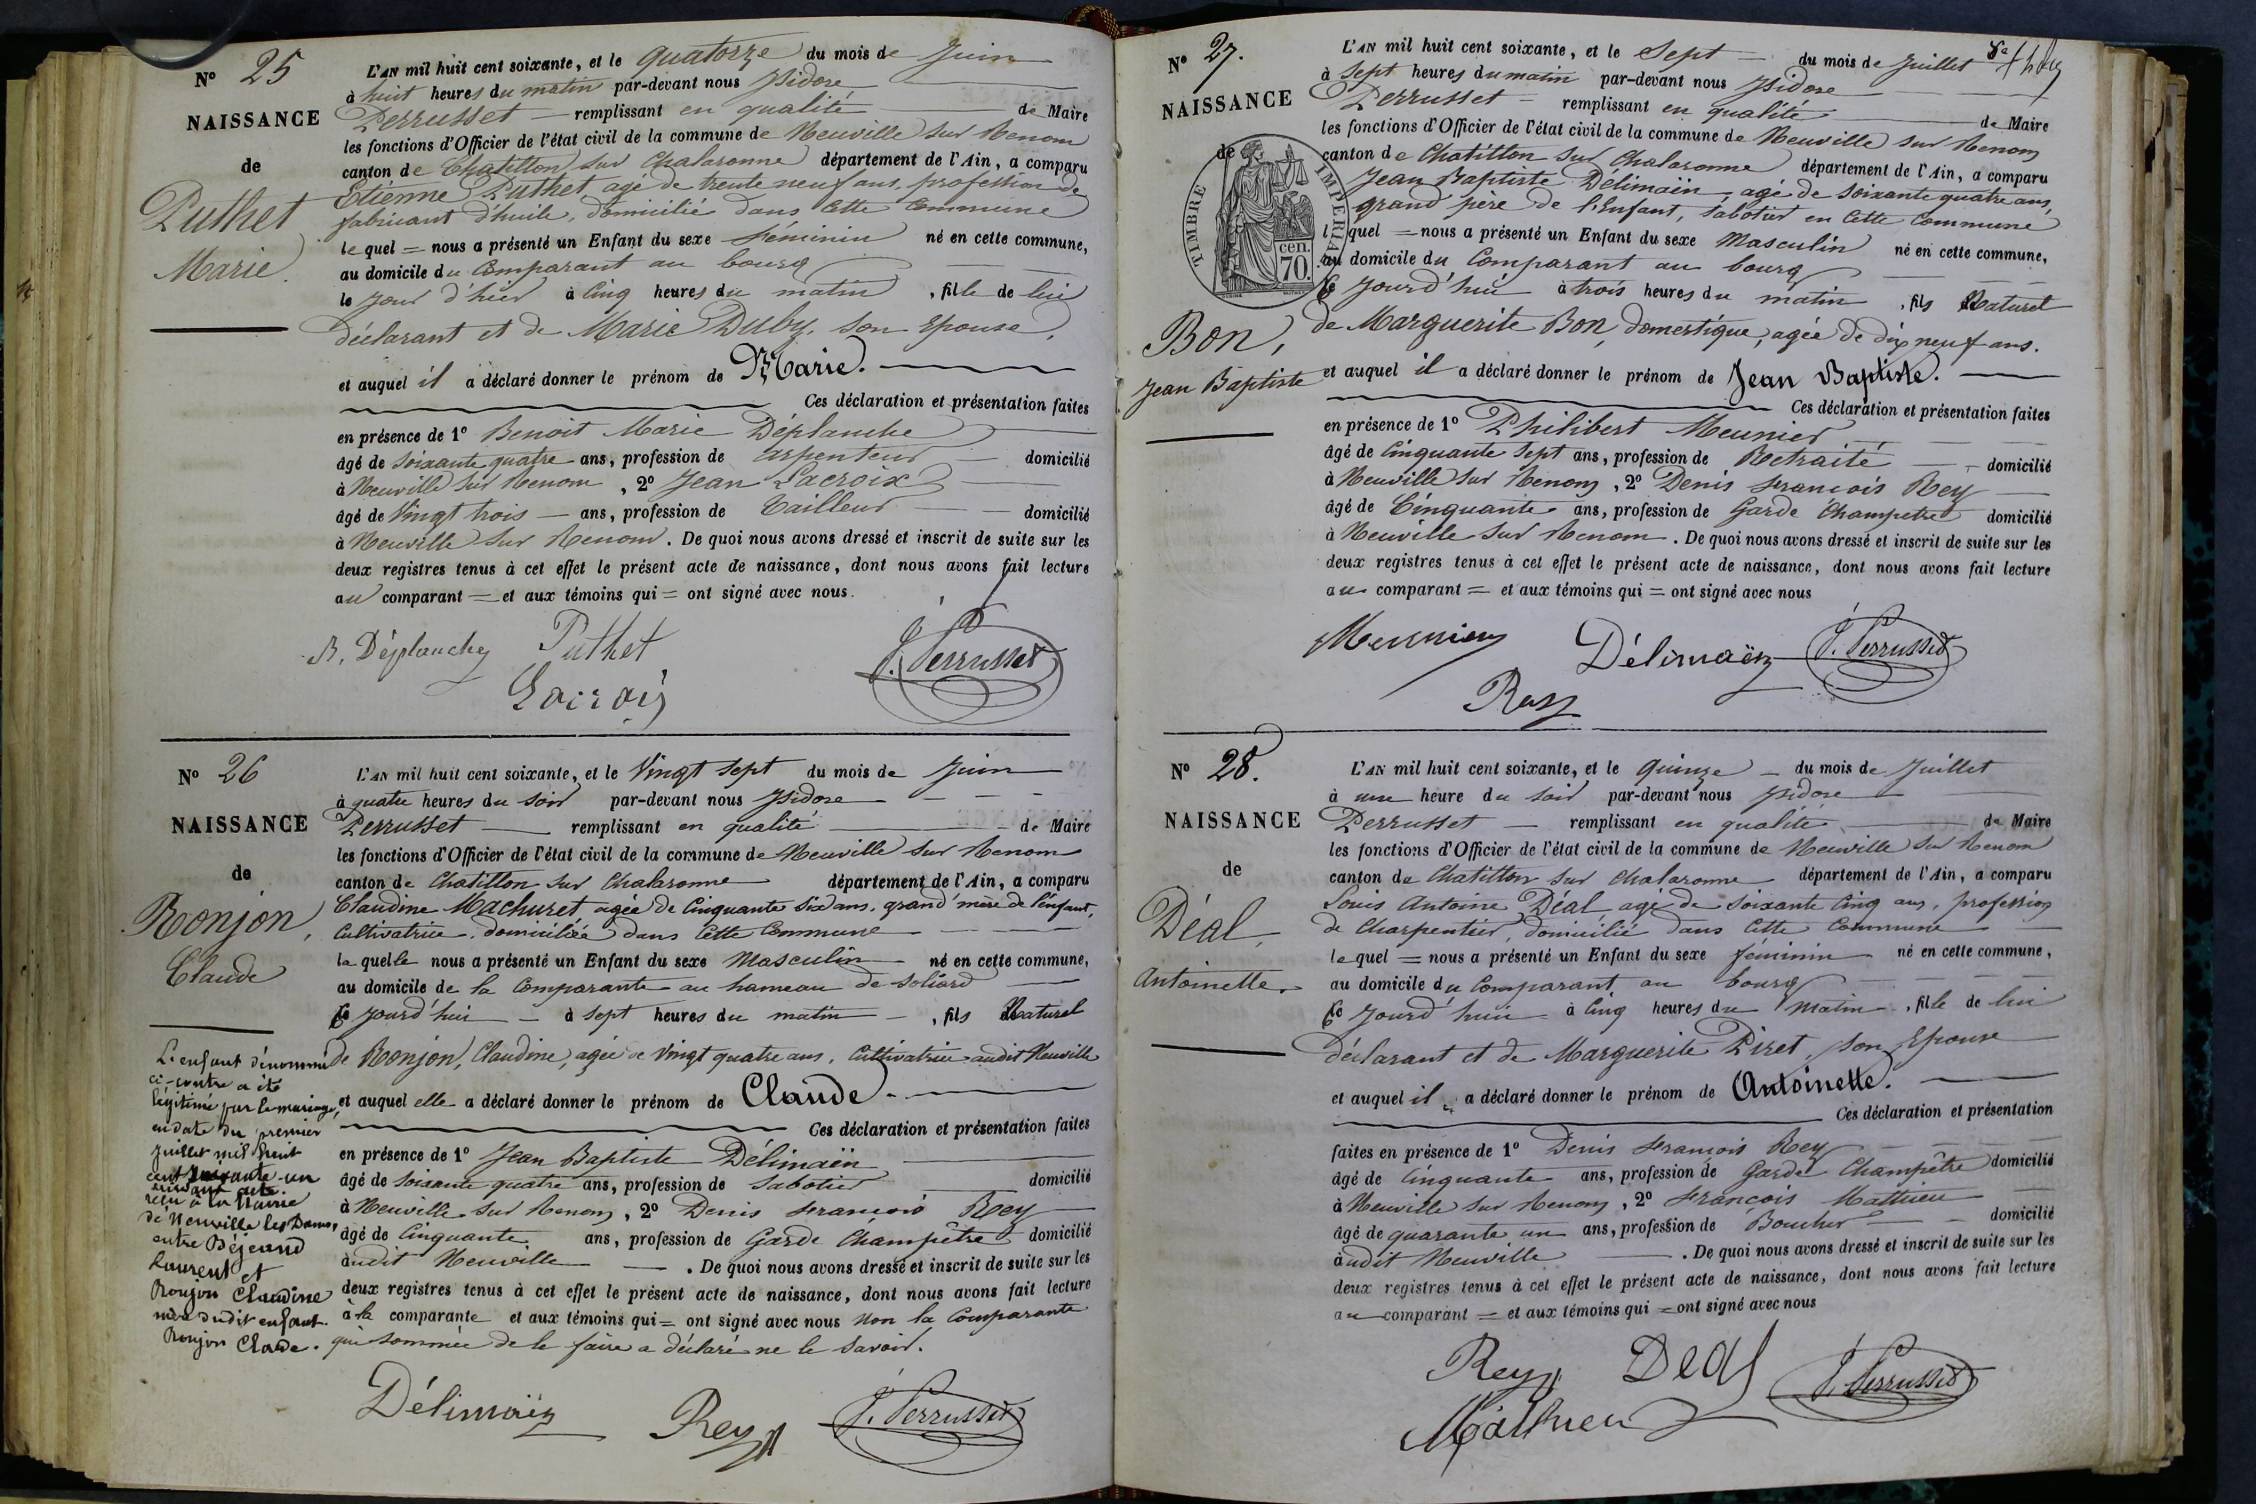 N° 25
NAISSANCE
de
Puthet
Marie
L'AN mil huit cent soixante, et le quatorze du mois de Juin
à huit heures du matin par-devant nous Isidore
Perrusset remplissant en qualité de Maire
les fonctions d'Officier de l'état civil de la commune de Neuville sur Renom
canton de Chatillon sur Chalaronne département de l'Ain, a comparu
Etienne Puthet, agé de trente neuf ans, profession de
fabricant d'huile, domicilié dans cette Commune
le quel = nous a présenté un Enfant du sexe féminin né en cette commune,
au domicile du Comparant au bourg
le jour d'hier à Cinq heures du matin, fille de lui
déclarant et de Marie Duby, son Epouse,
et auquel il a déclaré donner le prénom de Marie.
Ces déclaration et présentation faites
en présence de 1° Benoit Marie Déplanche
âgé de soixante quatre ans, profession de arpenteur domicilié
à Neuville sur Renom, 2° Jean Lacroix
âgé de Vingt trois ans, profession de Tailleur domicilié
à Neuville sur Renom. De quoi nous avons dressé et inscrit de suite sur les
deux registres tenus à cet effet le présent acte de naissance, dont nous avons fait lecture
au comparant = et aux témoins qui = ont signé avec nous.
B. Déplanche Puthet J. Perrusset
Lacroix
N° 26
NAISSANCE
de
Ronjon,
Claude
L'AN mil huit cent soixante, et le Vingt sept du mois de Juin
à quatre heures du soir par-devant nous Isidore
Perrusset remplissant en qualité de Maire
les fonctions d'Officier de l'état civil de la commune de Neuville sur Renom
canton de Chatillon sur Chalaronne département de l'Ain, a comparu
Claudine Machuret, agée de Cinquante Six ans, grand'mère de l'enfant,
Cultivatrice, domiciliée dans Cette Commune
la quelle nous a présenté un Enfant du sexe Masculin né en cette commune,
au domicile de la Comparante au hameau de Soliard
Ce jourd'hui à sept heures du matin, fils Naturel
de Ronjon, Claudine, agée de Vingt quatre ans, Cultivatrice audit Neuville
et auquel elle a déclaré donner le prénom de Claude.
Ces déclaration et présentation faites
en présence de 1° Jean Baptiste Délimaën
âgé de soixante quatre ans, profession de Sabotier domicilié
à Neuville sur Renom, 2° Denis François Rey
âgé de Cinquante ans, profession de Garde Champêtre domicilié
audit Neuville. De quoi nous avons dressé et inscrit de suite sur les
deux registres tenus à cet effet le présent acte de naissance, dont nous avons fait lecture
à la comparante et aux témoins qui = ont signé avec nous non la Comparante
qui sommée de le faire a déclaré ne le savoir.
L'enfant dénommé
ci-contre a été
légitimé par le mariage,
en date du premier
Juillet mil huit
cent soixante-un
suivant acte
reçu à la Mairie
de Neuville les Dames
entre Béjeand
Laurent et
Ronjon Claudine
mère dudit enfant
Ronjon Claude.
Délimaën Rey J. Perrusset
N° 27.
NAISSANCE
de
TIMBRE IMPERIAL
cen.
70.
Bon,
Jean Baptiste
L'AN mil huit cent soixante, et le Sept du mois de Juillet
à Sept heures du matin par-devant nous Isidore
Perrusset remplissant en qualité de Maire
les fonctions d'Officier de l'état civil de la commune de Neuville sur Renom
canton de Chatillon sur Chalaronne département de l'Ain, a comparu
Jean Baptiste Délimaën, agé de soixante quatre ans,
grand père de l'Enfant, Sabotier en Cette Commune
lequel = nous a présenté un Enfant du sexe Masculin né en cette commune,
au domicile du Comparant au bourg
Ce jourd'hui à trois heures du matin, fils Naturel
de Marguerite Bon, domestique, agée de dix neuf ans.
et auquel il a déclaré donner le prénom de Jean Baptiste.
Ces déclaration et présentation faites
en présence de 1° Philibert Meunier
âgé de Cinquante Sept ans, profession de Retraité domicilié
à Neuville sur Renom, 2° Denis François Rey
âgé de Cinquante ans, profession de Garde Champetre domicilié
à Neuville sur Renom. De quoi nous avons dressé et inscrit de suite sur les
deux registres tenus à cet effet le présent acte de naissance, dont nous avons fait lecture
au comparant = et aux témoins qui = ont signé avec nous
Meunier Délimaën J. Perrusset
Rey
N° 28.
NAISSANCE
de
Déal,
Antoinette.
L'AN mil huit cent soixante, et le Quinze du mois de Juillet
à une heure du soir par-devant nous Isidore
Perrusset remplissant en qualité de Maire
les fonctions d'Officier de l'état civil de la commune de Neuville sur Renom
canton de Chatillon sur Chalaronne département de l'Ain, a comparu
Louis Antoine Déal agé de soixante Cinq ans, profession
de Charpentier, domicilié dans Cette Commune
lequel = nous a présenté un Enfant du sexe féminin né en cette commune,
au domicile du Comparant au bourg
Ce jourd'hui à Cinq heures du Matin, fille de lui
déclarant et de Marguerite Piret, son Epouse
et auquel il a déclaré donner le prénom de Antoinette.
Ces déclaration et présentation
faites en présence de 1° Denis François Rey
âgé de Cinquante ans, profession de Garde Champêtre domicilié
à Neuville sur Renom, 2° François Matthieu
âgé de quarante un ans, profession de Boucher domicilié
audit Neuville. De quoi nous avons dressé et inscrit de suite sur les
deux registres tenus à cet effet le présent acte de naissance, dont nous avons fait lecture
au comparant = et aux témoins qui = ont signé avec nous
Rey Deal J. Perrusset
Mathieu